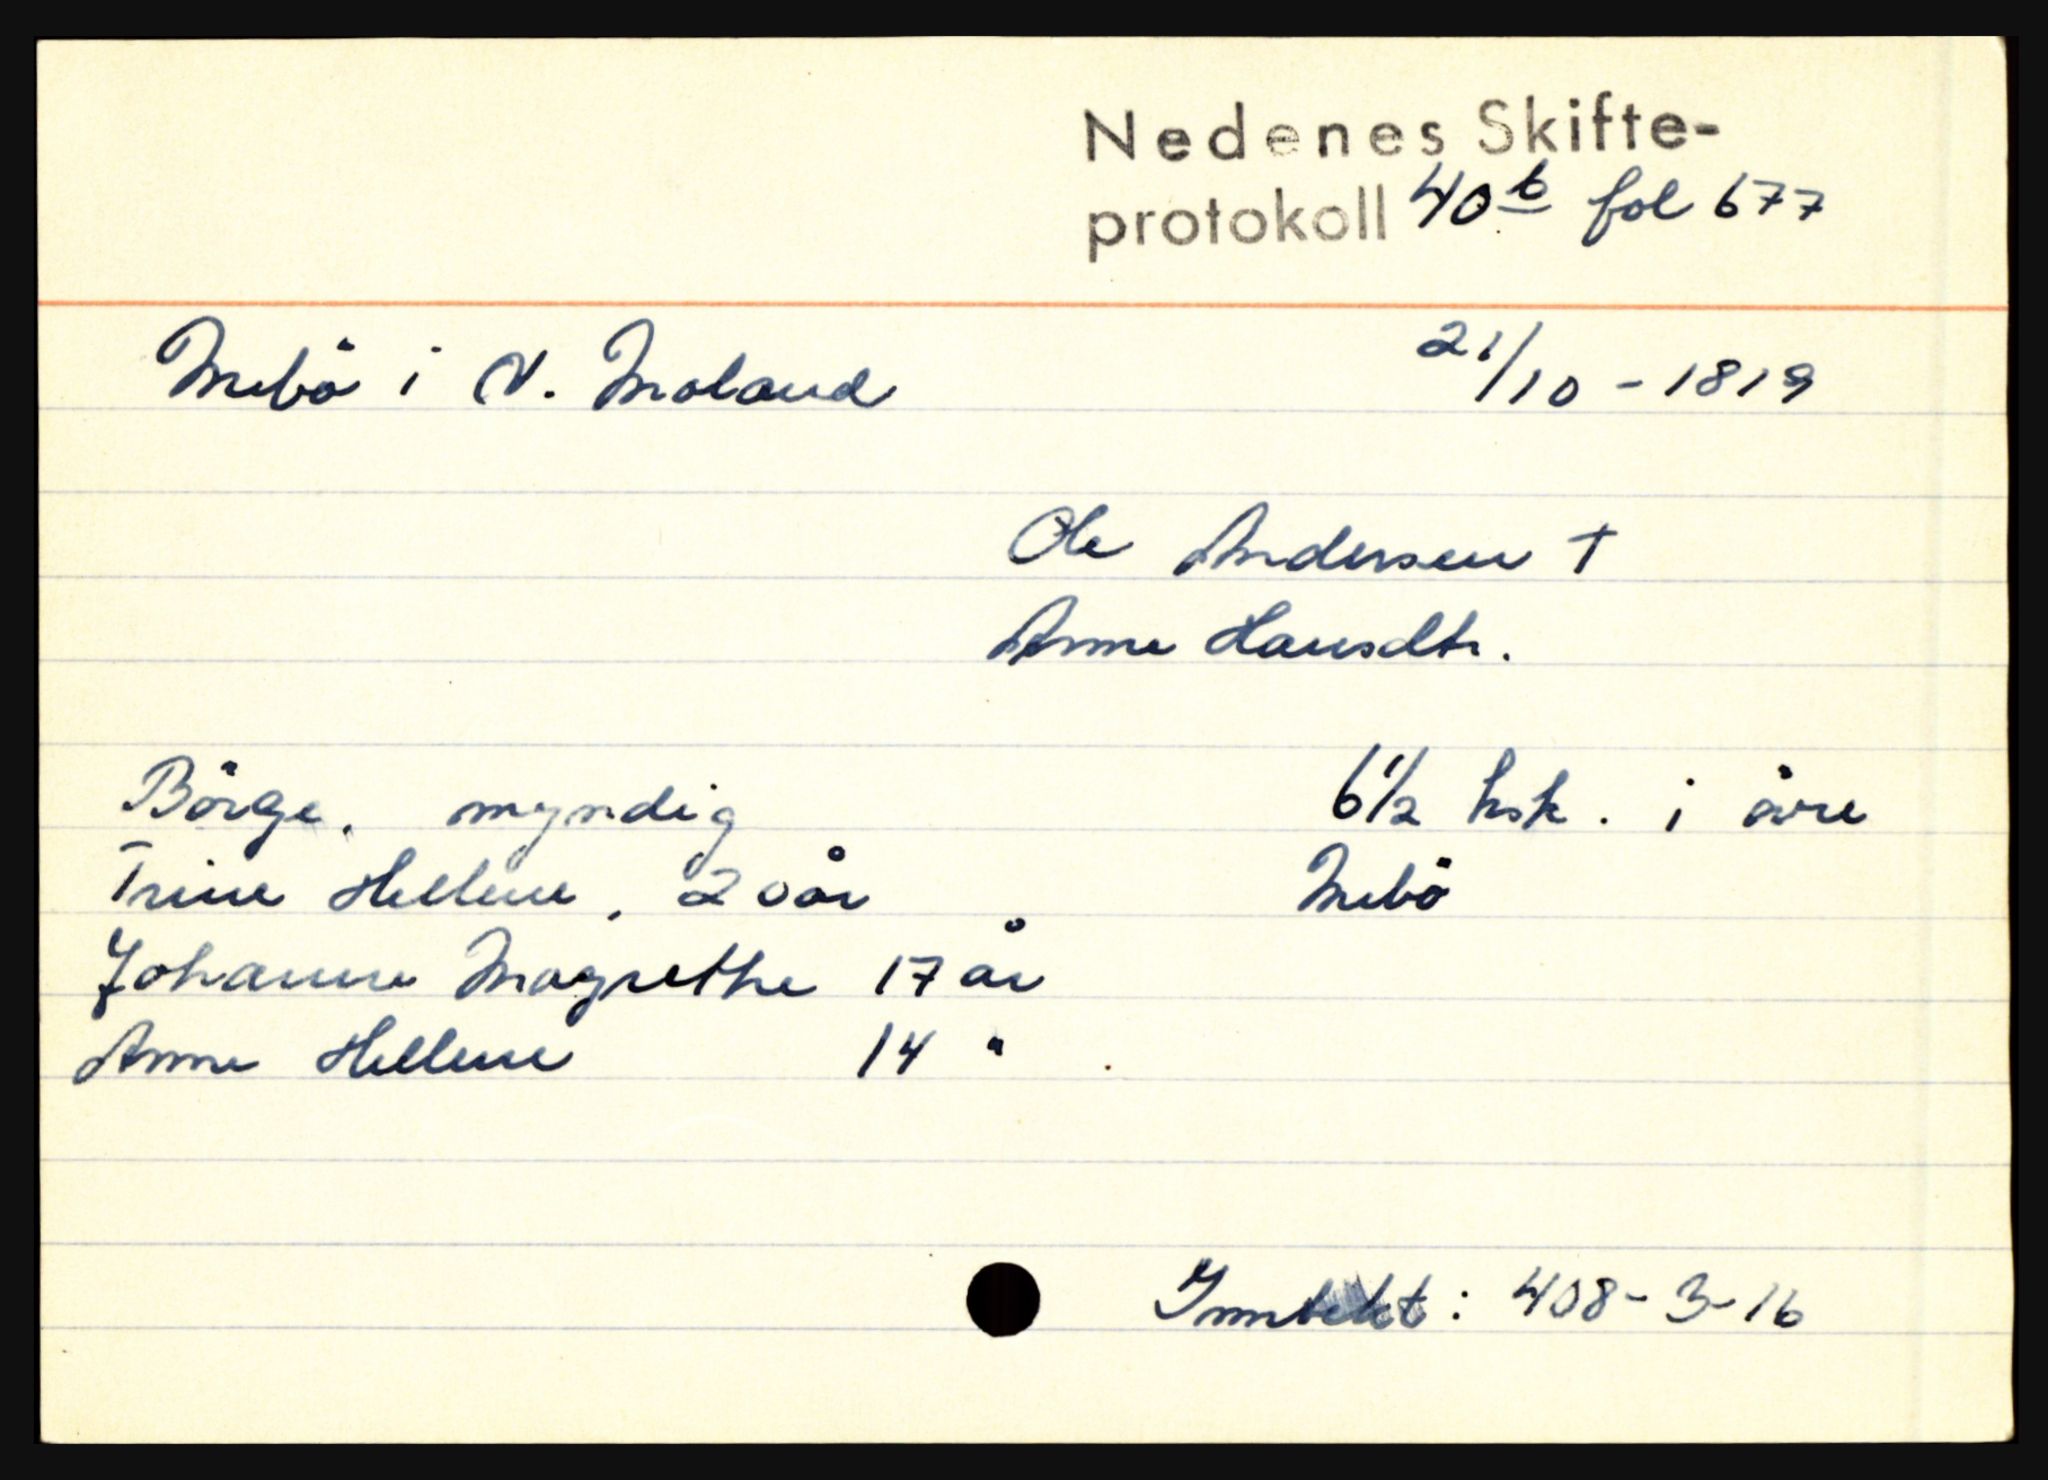 Nedenes Skifte-
protokoll 40b fol 677
Mebö i N. Moland 21/10 - 1819
Ole Andersen †
Anne Hansdtr.
Börge, myndig 6 1/2 hsk. i övre
Trine Hellene, 20 år Mebö
Johanne Magrethe 17 år
Anne Hellene 14 "
Inntekt: 408-3-16